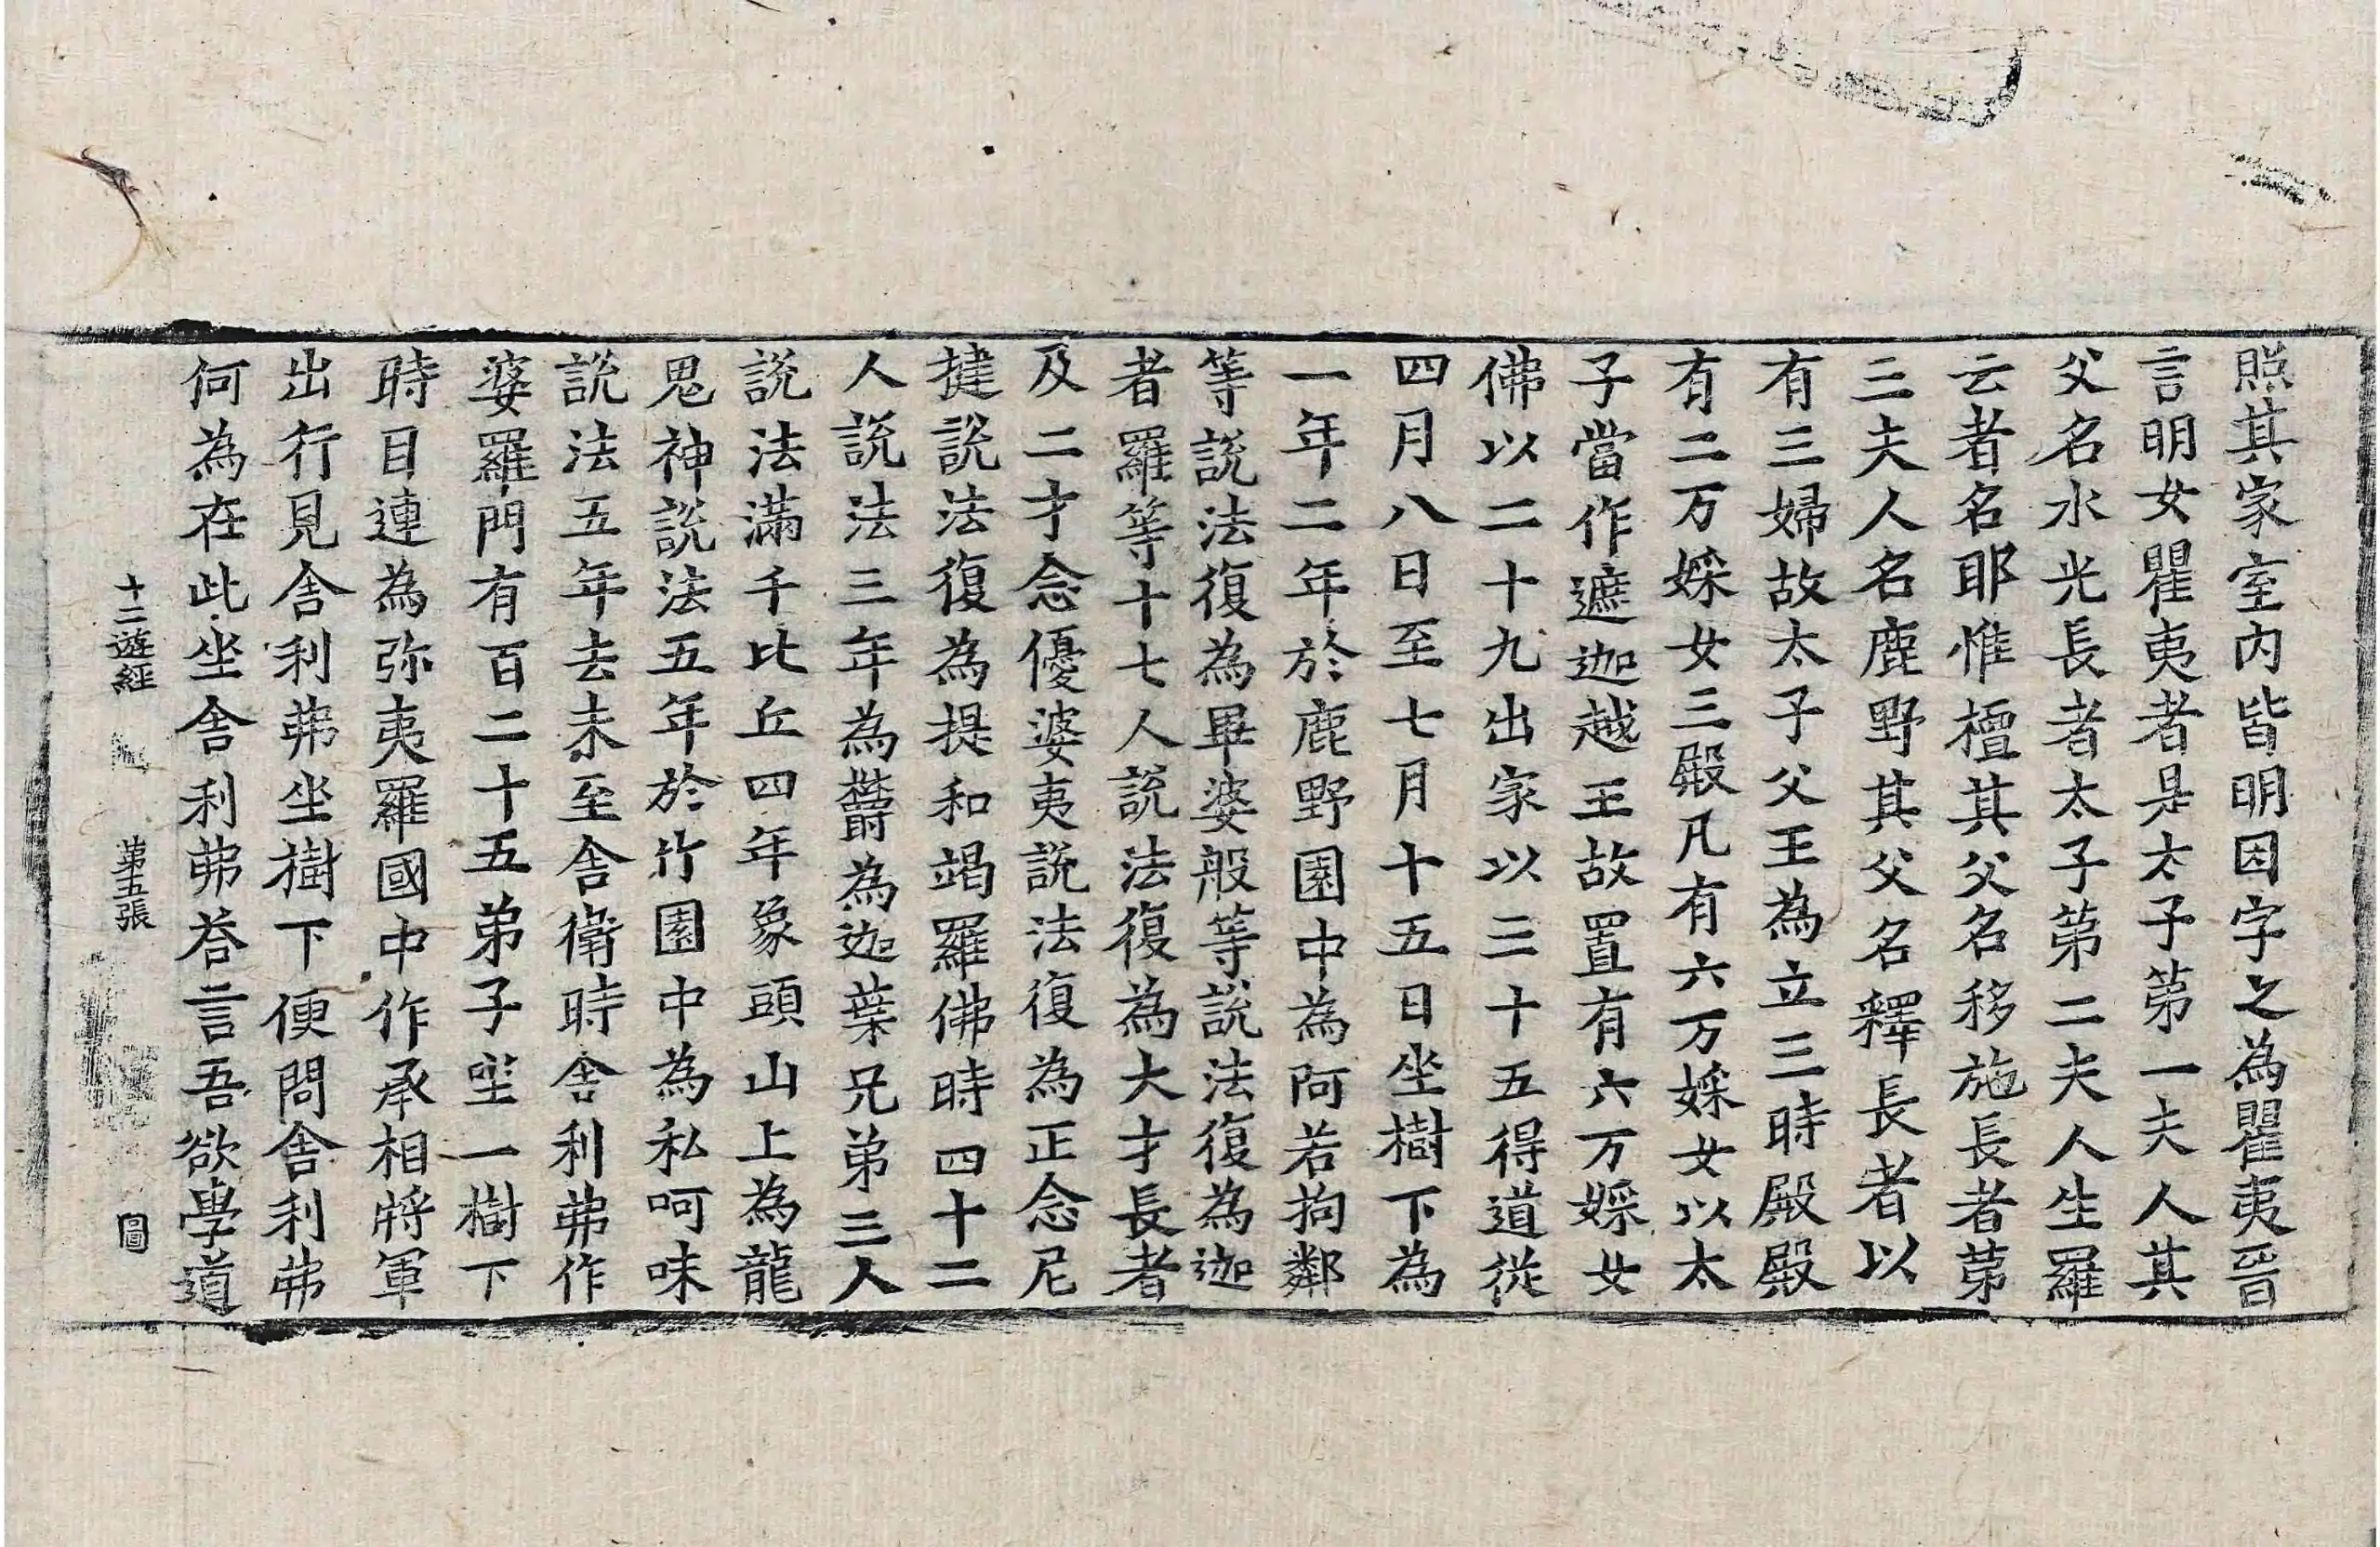 照其家室內皆明因字之為瞿夷晉
言明女瞿夷者是太子第一夫人其
父名水光長者太子第二夫人生羅
云者名耶惟檀其父名移施長者第
三夫人名鹿野其父名釋長者以
有三婦故太子父王為立三時殿殿
有二万婇女三殿凡有六万婇女以太
子當作遮迦越王故置有六万婇女
佛以二十九出家以三十五得道從
四月八日至七月十五日坐樹下為
一年二年於鹿野園中為阿若拘鄰
等說法復為畢婆般等說法復為迦
者羅等十七人說法復為大才長者
及二才念優婆夷說法復為正念尼
揵說法復為提和竭羅佛時四十二
人說法三年為欝為迦葉兄弟三人
說法滿千比丘四年象頭山上為龍
鬼神說法五年於竹園中為私呵昧
說法五年去未至舍衛時舍利弗作
婆羅門有百二十五弟子坐一樹下
時目連為弥夷羅國中作承相將軍
出行見舍利弗坐樹下便問舍利弗
何為在此坐舍利弗荅言吾欲學道
十二遊經 第五張 圖